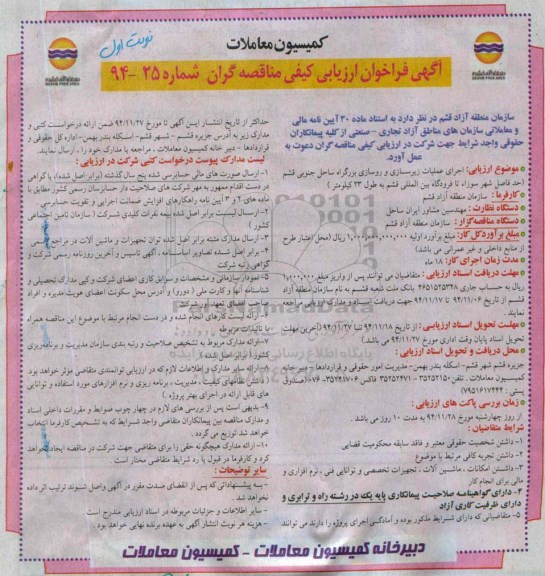 کمیسیون معاملات
نوبت اول
آگهی فراخوان ارزیابی کیفی مناقصه گران شماره ۲۵ -۹۴
سازمان منطقه آزاد قشم در نظر دارد به استناد ماده ۳۰ آیین نامه مالی
و معاملاتی سازمان های مناطق آزاد تجاری - صنعتی از کلیه پیمانکاران
حقوقی واجد شرایط جهت شرکت در ارزیابی کیفی مناقصه گران دعوت به
عمل آورد.
موضوع ارزیابی: اجرای عملیات زیرسازی و روسازی بزرگراه ساحل جنوبی قشم
(حد فاصل شهر سوزا، تا فرودگاه بین المللی قشم به طول ۲۳ کیلومتر )
کارفرما : سازمان منطقه آزاد قشم
دستگاه نظارت : مهندسین مشاور ایران ساحل
دستگاه مناقصه گزار: سازمان منطقه آزاد قشم
مبلغ برآورد کل کار: مبلغ برآورد اولیه ۱,۰۰۰,۰۰۰,۰۰۰,۰۰۰ ریال (محل اعتبار طرح
از منابع داخلی و غیر عمرانی می باشد)
مدت زمان اجرای کار: ۱۸ ماه
مهلت دریافت اسناد ارزیابی : متقاضیان می توانند پس از واریز مبلغ ۱,۰۰۰,۰۰۰
ریال به حساب جاری بانک ملت شعبه قشم به نام سازمان منطقه آزاد
قشم از تاریخ ۹۴/۱۱/۰۶ تا ۹۴/۱۱/۱۷ جهت دریافت اسناد و مدارک ارزیابی مراجعه
نمایند.
مهلت تحویل اسناد ارزیابی : از تاریخ ۹۴/۱۱/۱۸ تا ۹۴/۱۱/۲۷ (آخرین مهلت
تحویل اسناد پایان وقت اداری مورخ ۹۴/۱۱/۲۷ می باشد)
محل دریافت و تحویل اسناد ارزیابی :
جزیره قشم شهر قشم- اسکله بندر بهمن- مدیریت امور حقوقی و قراردادها - دبیرخانه
کمیسیون معاملات . تلفن ۳۵۲۵۲۱۵۰ - ۳۵۲۵۲۴۷۱ فاکس ۳۵۲۴۱۷۰۶- ۰۷۶(صندوق
پستی : ۷۹۵۱۶۱۷۴۴۴)
زمان بررسی پاکت های ارزیابی :
از روز چهارشنبه مورخ ۹۴/۱۱/۲۸ به مدت ۱۰ روز می باشد .
شرایط متقاضیان :
۱- داشتن شخصیت حقوقی معتبر و فاقد سابقه محکومیت قضایی
۲- داشتن تجربه کافی مرتبط با موضوع
۳- داشتن امکانات ، ماشین آلات ، تجهیزات تخصصی و توانایی فنی ، نرم افزاری و
مالی برای انجام کار
۴- دارای گواهینامه صلاحیت پیمانکاری پایه یک در رشته راه و ترابری و
دارای ظرفیت کاری آزاد
۵- متقاضیانی که دارای شرایط مذکور بوده و آمادگی اجرای پروژه را دارند می توانند
حداکثر از تاریخ انتشار این آگهی تا مورخ ۹۴/۱۱/۲۷ ضمن ارائه درخواست کتبی و
مدارک زیر به آدرس جزیره قشم - شهر قشم- اسکله بندر بهمن- اداره کل حقوقی و
قراردادها - دبیر خانه کمیسیون معاملات ، مراجعه یا مدارک خود را ، ارسال نمایند.
لیست مدارک پیوست درخواست کتبی شرکت در ارزیابی :
۱- ارسال صورت های مالی حسابرسی شده پنج سال گذشته (برابر اصل شده)، یا گواهی
در دست اقدام ممهور به مهر شرکت های صلاحیت دار حسابرسان رسمی کشور مطابق با
ماده های ۲ و ۳ آیین نامه راهکارهای افزایش ضمانت اجرایی و تقویت حسابرسی
۲- ارسال لیست برابر اصل شده بیمه نفرات کلیدی شرکت ( سازمان تامین اجتماعی
کشور )
۳- ارسال مدارک مثبته برابر اصل شده توان تجهیزات و ماشین آلات در مراجع رسمی
۴- برابر اصل شده تصاویر اساسنامه ، آگهی تاسیس و آخرین روزنامه رسمی شرکت و
گواهی رتبه شرکت
۵- نمودار سازمانی و مشخصات و سوابق کاری اعضای شرکت و کپی مدارک تحصیلی و
شناسنامه آنها و کارت ملی ( دورو) و آدرس محل سکونت اعضای هویت مدیره و افراد
صاحب امضای تعهد آور شرکت
۶- ارائه لیست کارهای انجام شده و در دست انجام مرتبط با موضوع این مناقصه همراه
با تائیدات مربوطه
۷- ارائه مدارک مربوط به تشخیص صلاحیت و رتبه بندی سازمان مدیریت و برنامه ریزی
کشور ( برابر اصل شده)
۸- ارائه سایر مدارک و اطلاعات لازم که در ارزیابی توانمندی متقاضی موثر خواهد بود
( داشتن نظامهای کیفیت ، مدیریت ، برنامه ریزی و نرم افزارهای مورد استفاده و توانایی
های قابل ارائه در اجرای بهتر پروژه )
۹- بدیهی است پس از بررسی های لازم در چهار چوب ضوابط و مقررات داخلی اسناد
و مدارک مناقصه بین پیمانکاران متقاضی واجد شرایط که به تشخیص کارفرما انتخاب
خواهد شد توزیع می گردد .
۱۰- ارائه مدارک هیچگونه حقی را برای متقاضی جهت شرکت در مناقصه ایجاد نخواهد
کرد و کارفرما در قبول یا رد شرایط متقاضی مختار است
سایر توضیحات :
- به پیشنهاداتی که پس از انقضای مدت مقرر در آگهی واصل شوند ترتیب اثر داده
نخواهد شد .
- سایر اطلاعات و جزئیات مربوطه در اسناد ارزیابی مندرج است.
- هزینه هر نوبت انتشار آگهی به عهده برنده نهایی خواهد بود.
دبیرخانه کمیسیون معاملات - کمیسیون معاملات